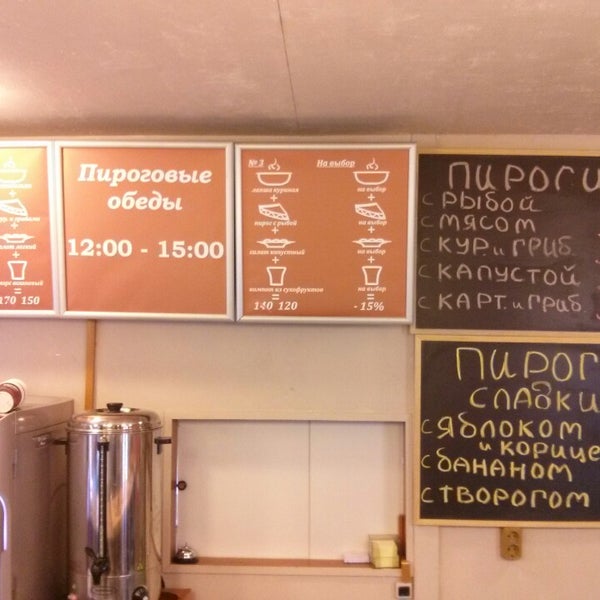 170 150
Пироговые
обеды
12:00 - 15:00
№ 3
лапша куриная
+
пирог с рыбой
+
салат капустный
+
компот из сухофруктов
=
140 120
На выбор
на выбор
+
на выбор
+
на выбор
+
на выбор
=
-15%
ПИРОГИ
С РЫБОЙ
С МЯСОМ
С КУР. и ГРИБ.
С КАПУСТОЙ
С КАРТ. и ГРИБ
ПИРОГ
СЛАДКИ
С ЯБЛОКОМ
и КОРИЦЕ
С БАНАНОМ
С ТВОРОГОМ